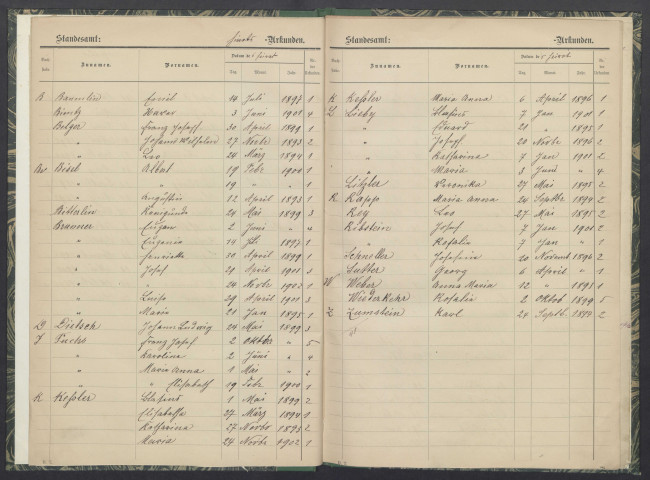 Standesamt: Heirats-Urkunden.
Zunamen. Vornamen. Datum der Heirat
Tag. Monat. Jahr.
B. Baumlin Emil 14 Juli 1897 1
Xaver 3 Juni 1901 4
Belger Franz Joseph 30 April 1899 1
" 27 Novbr 1893 2
" Leo 24 März 1894 1
Bisel Albat 19 Febr 1900 1
" " 19 " " 1
" Augustin 12 April 1893 1
Bitterlin Kunigunde 29 Mai 1899 3
Brunner Eugen 2 Juni " 4
" Eugenie 14 Juli 1897 1
" Henriette 30 April 1899 1
" Josef 29 April 1901 3
" " 24 Novbr 1902 1
" Luise 29 April 1901 3
" Maria 21 Jan 1895 1
D Dietsch Johann Ludwig 24 Mai 1899 3
F Fuchs Franz Josef 2 Oktober " 5
" Karolina 2 Juni " 4
" Maria Anna 1 Mai " 2
" " Elisabeth 19 Febr 1900 1
K Kessler Blasius 1 Mai 1899 2
Elisabetha 27 März 1894 1
Katharina 27 Novbr 1893 2
Maria 24 Novbr 1902 1
Standesamt: -Urkunden.
Zunamen. Vornamen. Datum der Heirat
Tag. Monat. Jahr.
K Kessler Maria Anna 6 April 1896 1
L Lieby 7 Jan 1901 1
" Eduard 21 " 1895 1
" Joseph 20 Novbr 1896 2
" Katharina 7 Jan 1901 2
" Maria 3 Juni " 4
Litzler Veronika 27 Mai 1895 2
R Rapp Maria Anna 24 Septbr 1894 2
Rey Leo 27 Mai 1895 2
Ribstein Josef 7 Jan 1901 2
" Rosalia 7 Jan " 1
Schneller Josefina 20 Novemb 1896 2
Sutter Georg 6 April " 1
W Weber Anna Maria 12 " 1893 1
Wiederkehr Rosalie 2 Oktob 1899 5
Z Zumstein Karl 24 Septb. 1894 2